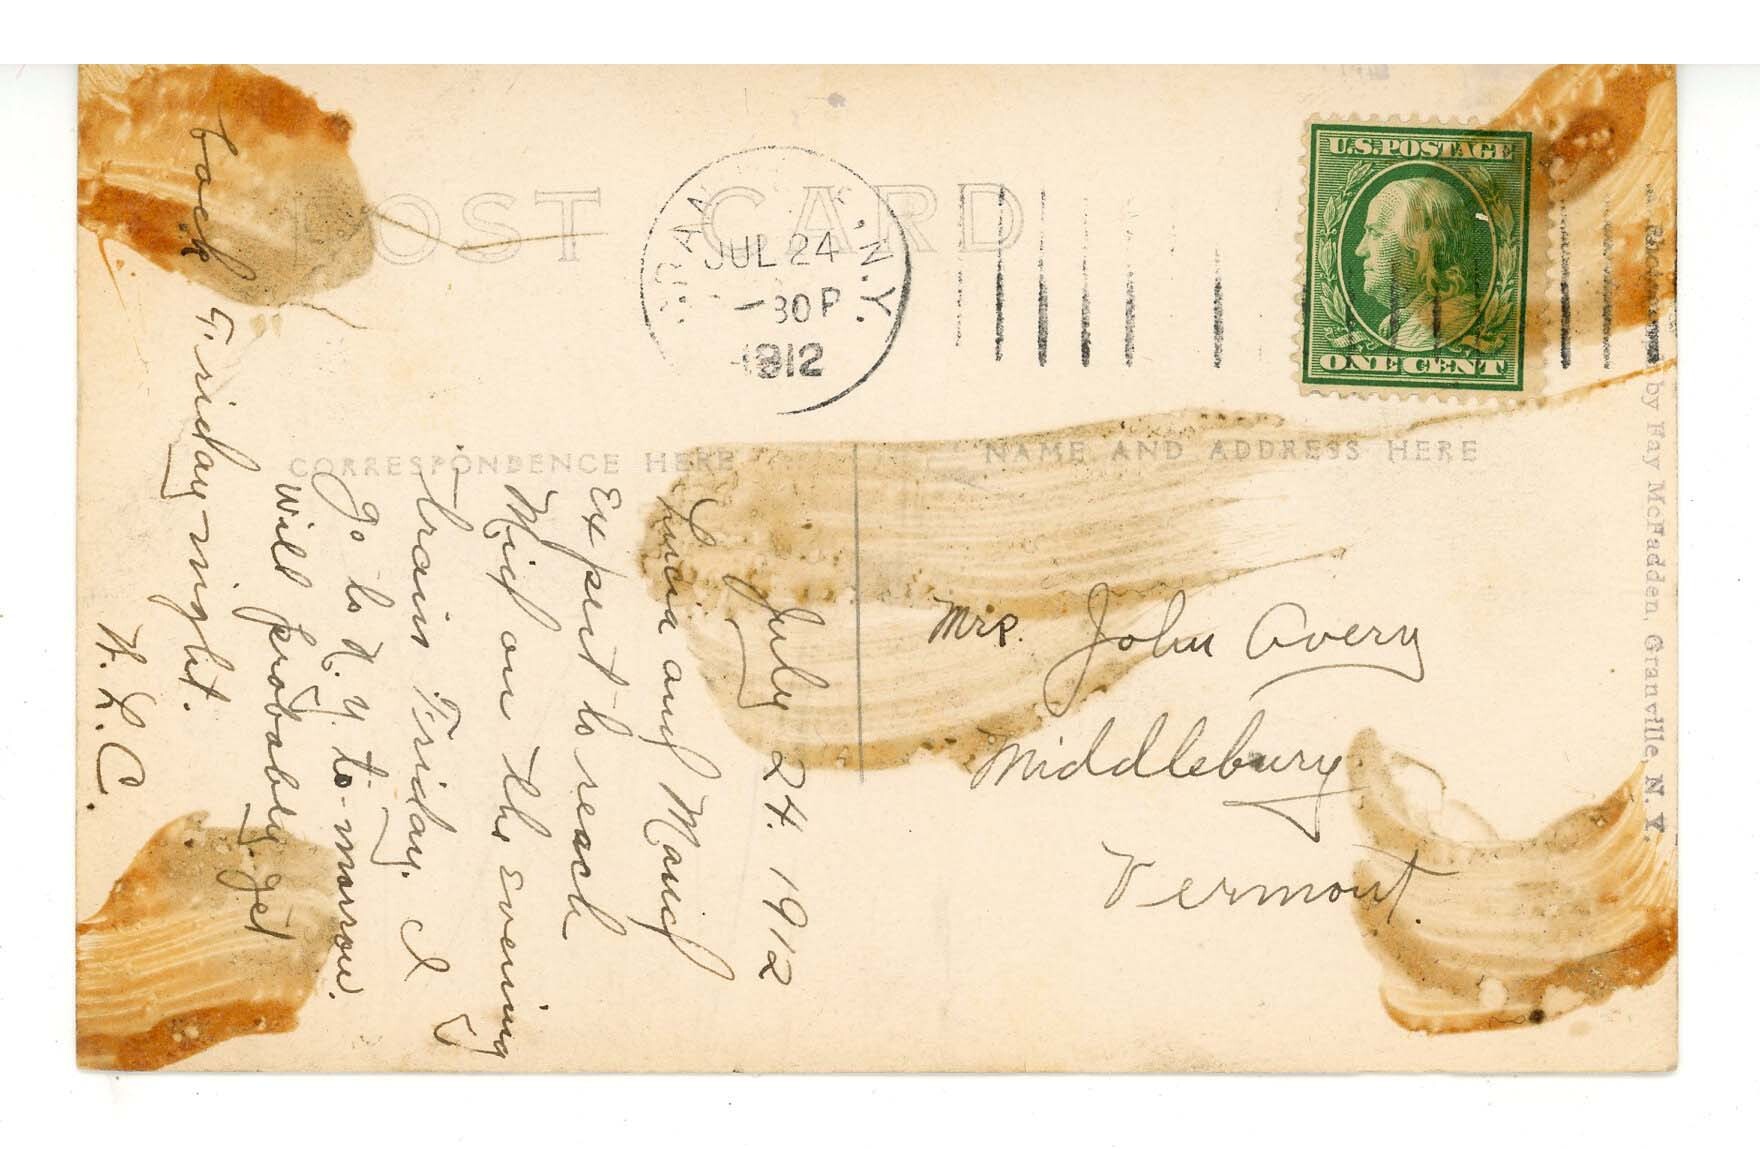 POST CARD
JUL 24
-30 P
1912
N.Y.
U.S. POSTAGE
ONE CENT
CORRESPONDENCE HERE
NAME AND ADDRESS HERE
July 24. 1912
and Maud
Expect to reach
Mid on the evening
train Friday. I
go to N.Y. to-morrow.
will probably get
back Friday-night.
H. L. C.
Mrs. John Avery
Middlebury
Vermont.
by Fay McFadden, Granville, N. Y.